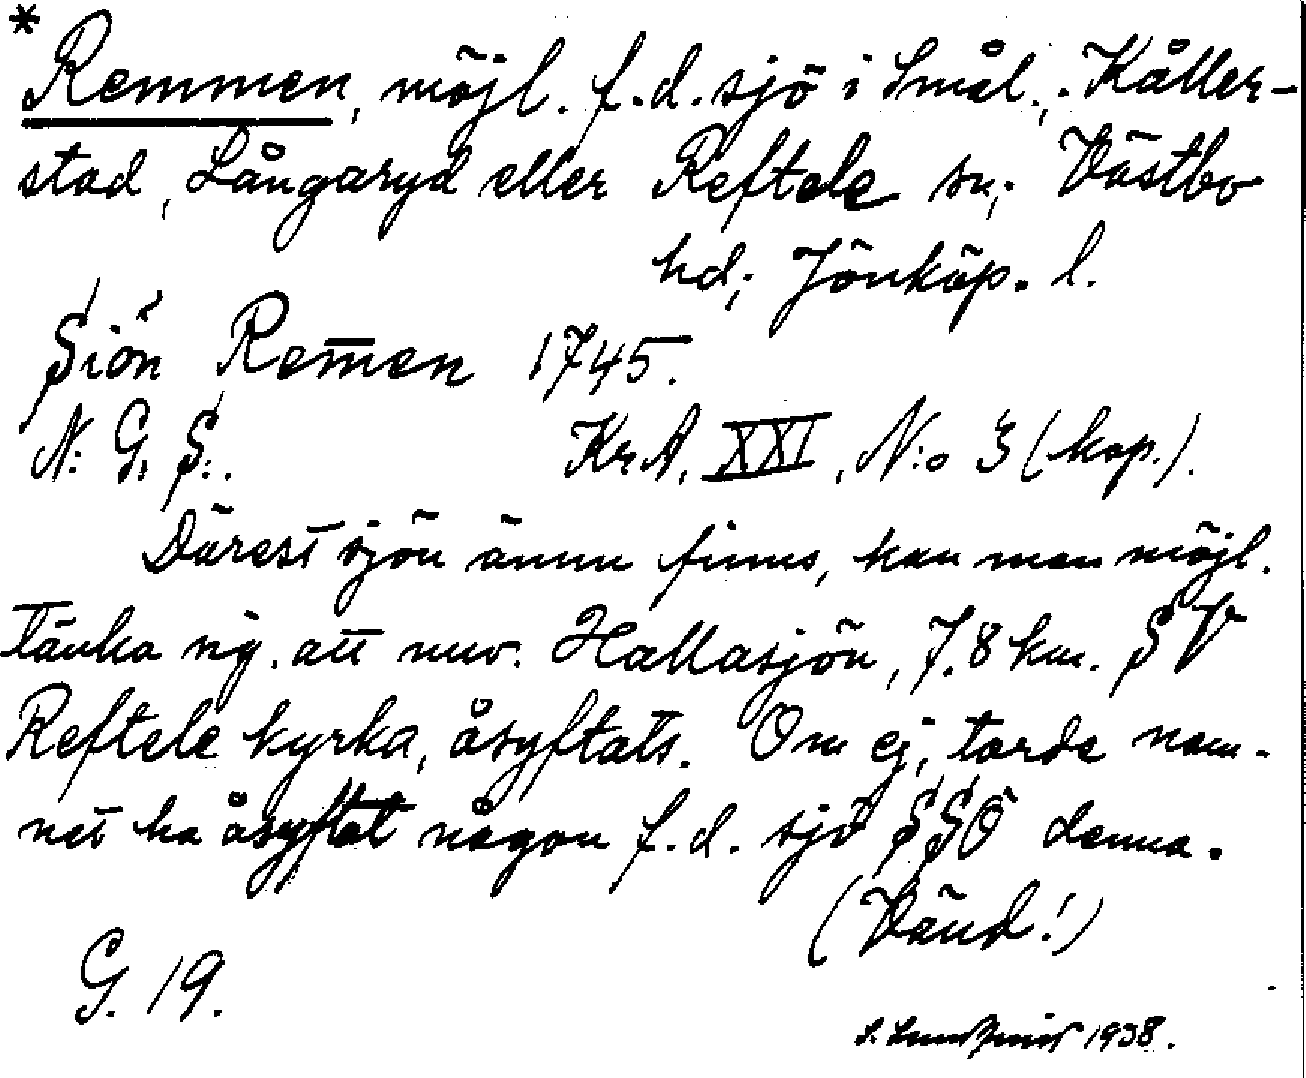 *
Remmen, möjl. f.d. sjö i Smål.; Kåller-
stad, Långaryd eller Reftele sn; Västbo
hd; Jönköp. l.
Siön Rem̅en 1745.
N: G. S:. KrA. XXI, N:o 3 (kop.).
Därest sjön ännu finns, kan man möjl.
tänka sig, att nuv. Hallasjön, 7.8 km. SV
Reftele kyrka, åsyftats. Om ej, torde nam-
net ha åsyftat någon f.d. sjö SSÖ denna.
(Vänd!)
G. 19.
1938.